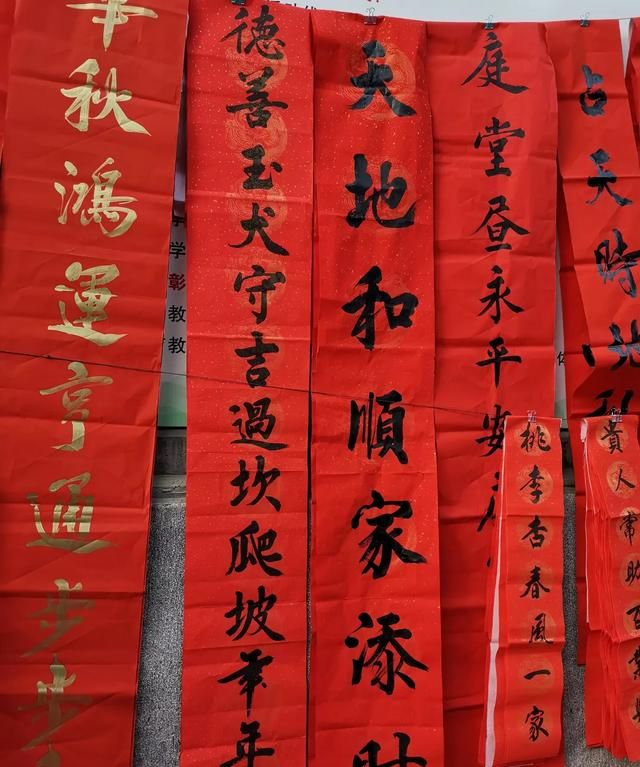 秋鴻運亨通步步
德善玉犬守吉過坎爬坡年年
天地和順家添財
庭堂昼永平安
占天時地利
桃李杏春風一家
貴人常助百業興
学
彰
教
教